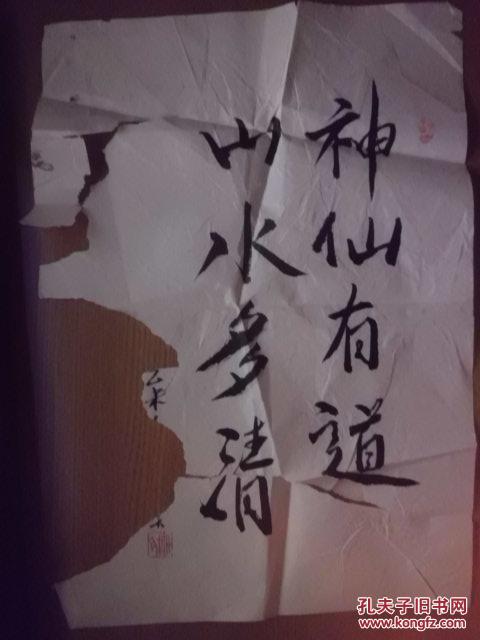 神仙有道
山水多清
孔夫子旧书网
www.kongfz.com